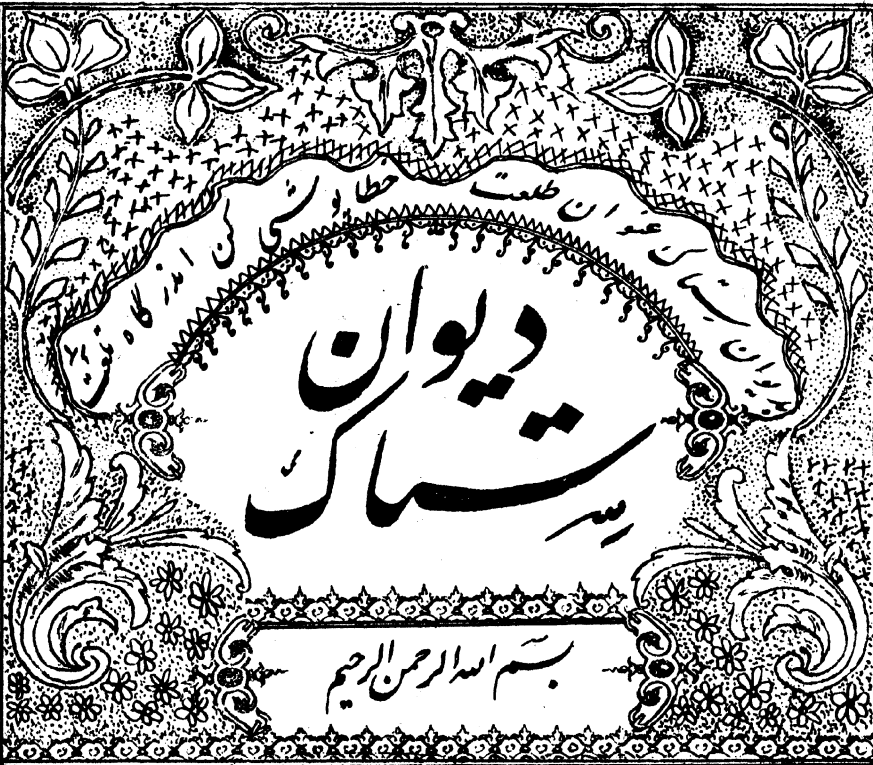 بدیوان ستاک عنوان طلعت خطا پوشی کن اندر گاه
دیوان
ستاک
بسم الله الرحمن الرحیم